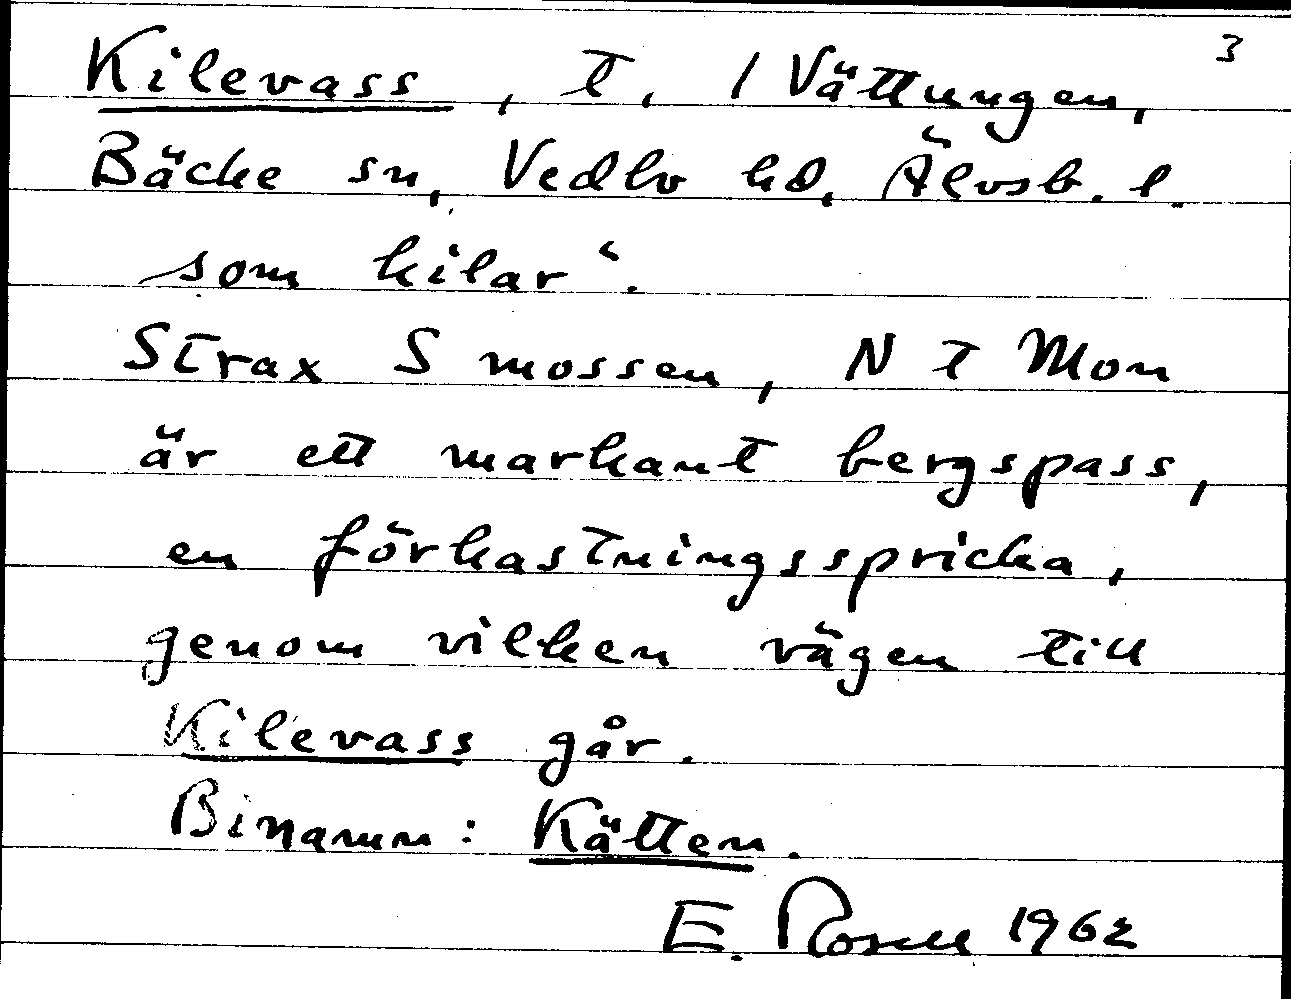 3
Kilevass, t. 1 Vättungen,
Bäcke sn, Vedbo hd, Älvsb. l.
som kilar".
Strax S mossen, N t Mon
är ett markant bergspass,
en förkastningsspricka,
genom vilken vägen till
Kilevass går.
Binamn: Kätten.
E. Rosell 1962